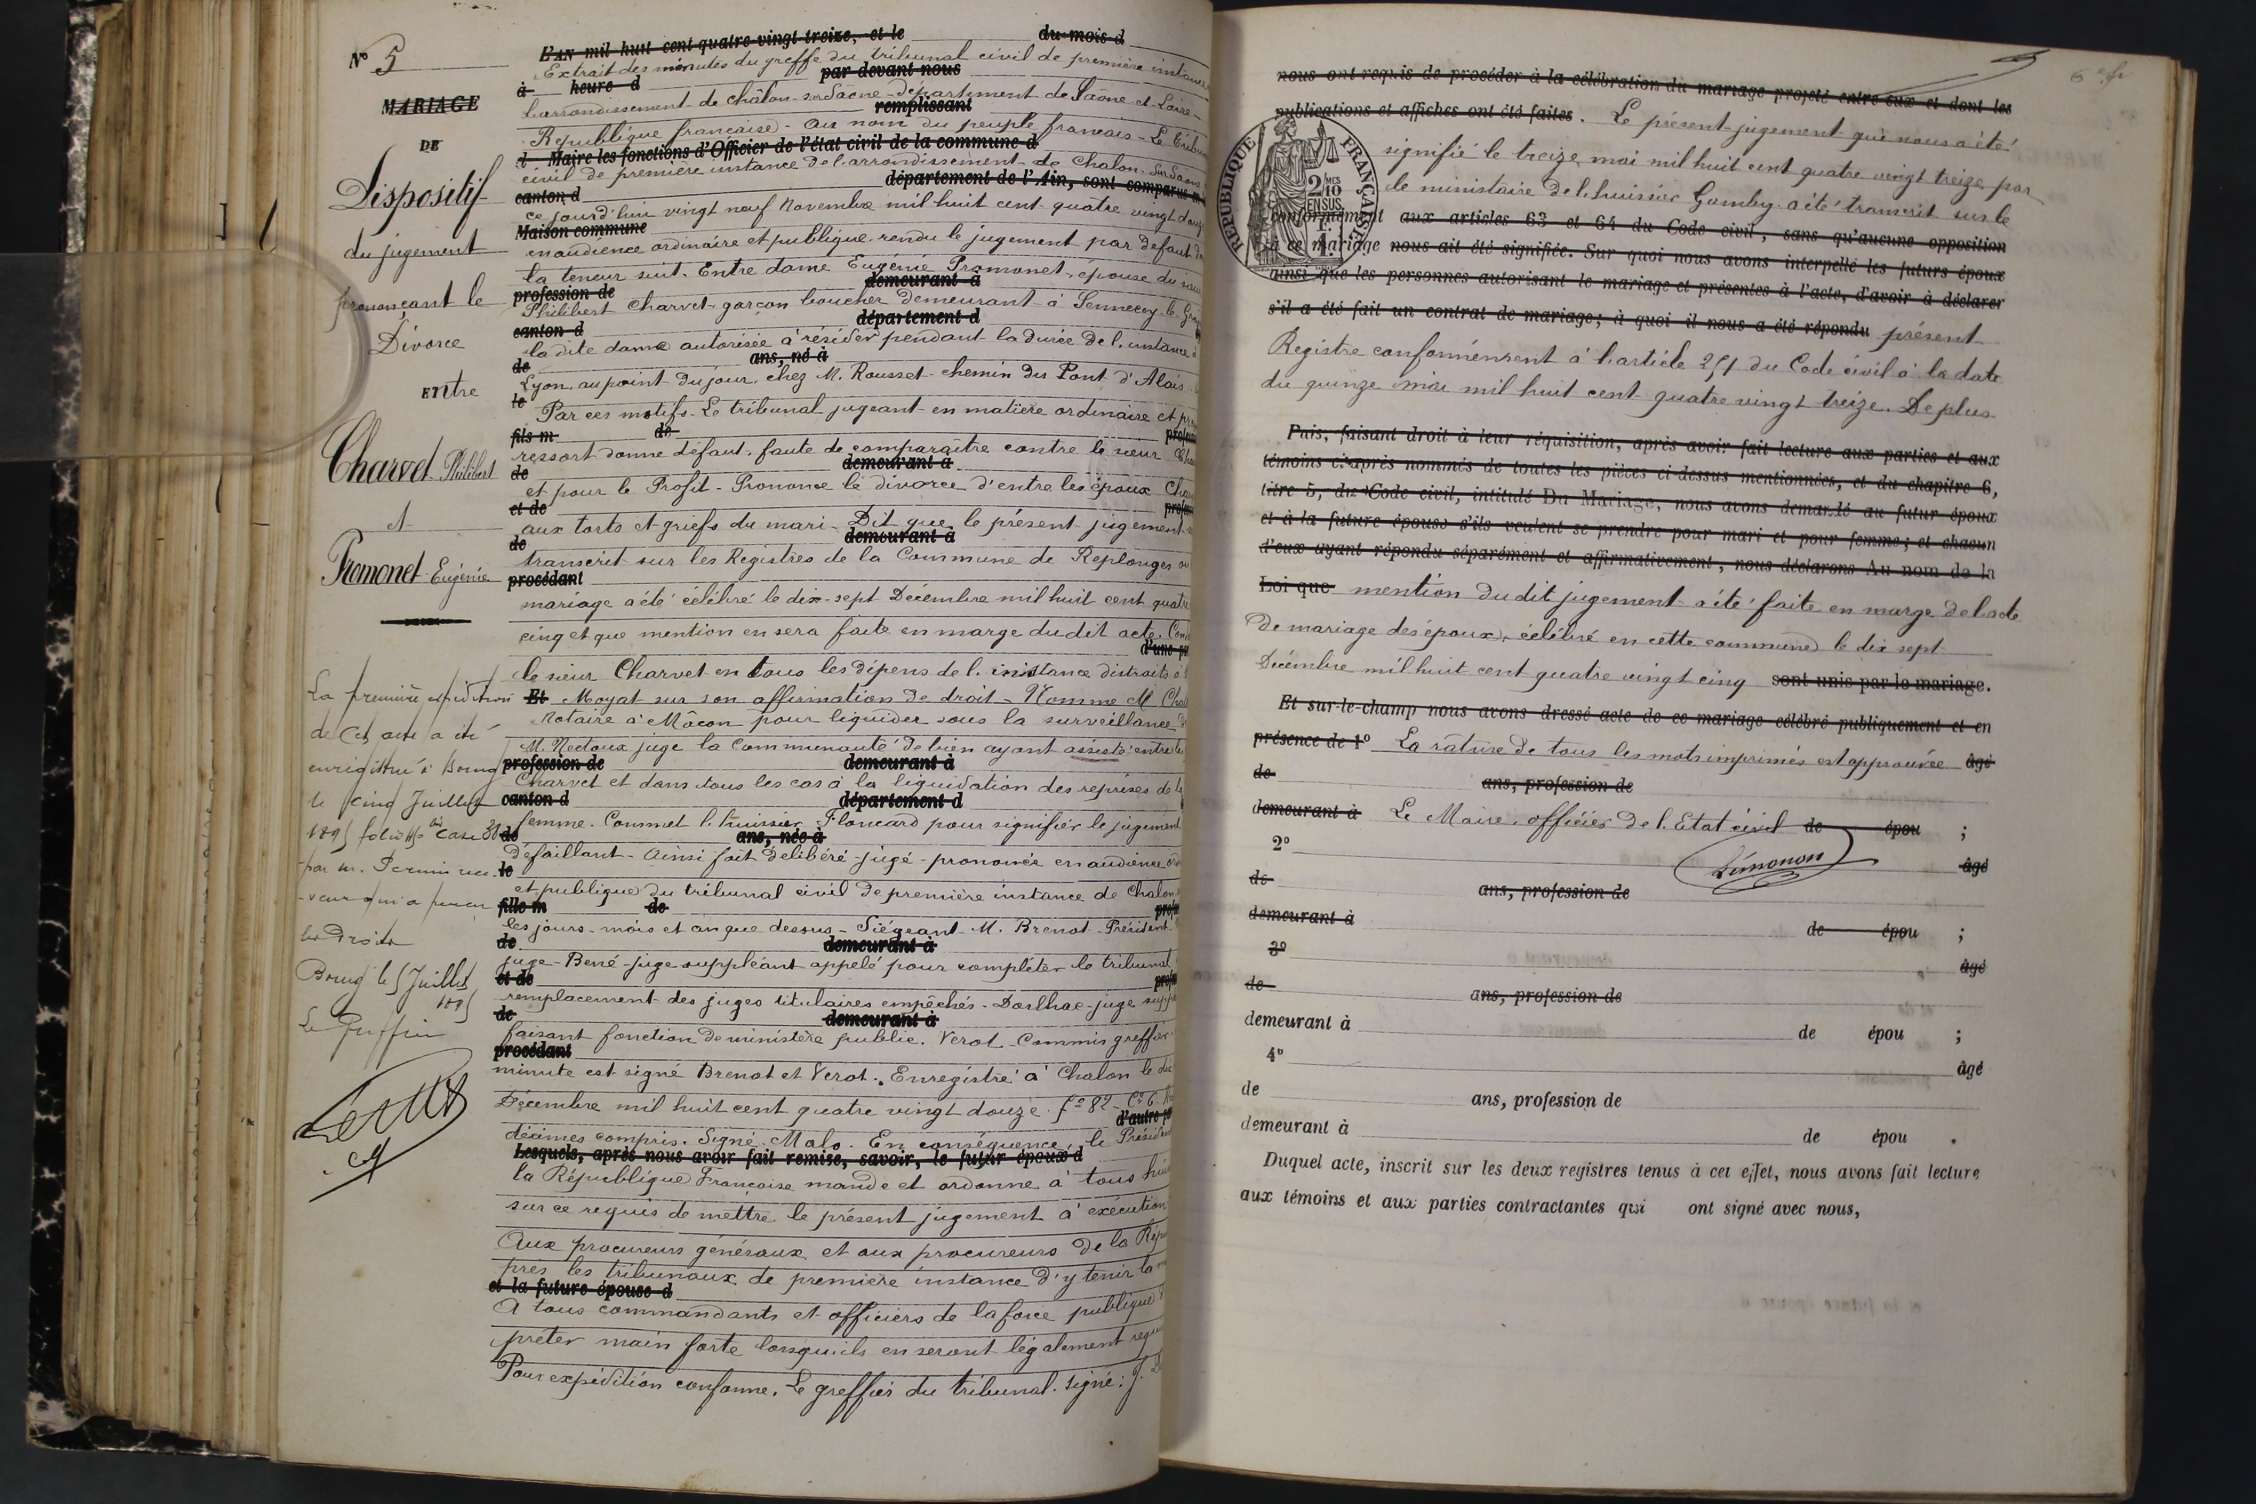 Nº 5
MARIAGE
DE
Dispositif
du jugement
prononçant le
Divorce
entre
Charvet Philibert
et
Promonet Eugénie
La première expédition
de Cet acte a été
enregistrée à Bourg
le cinq Juillet
1895 folio case
par m.
les Droits
Bourg le 5 Juillet
1895
Le Greffier
L'AN mil huit cent quatre-vingt-treize, et le du mois d
Extrait des minutes du greffe du tribunal civil de première instance
à heure d par devant nous
l'arrondissement de Châlon-sur-Saône - département de Saône-et-Loire -
remplissant
République française - Au nom du peuple français - Le Tribunal
d Maire les fonctions d'Officier de l'état civil de la commune d
civil de première instance de l'arrondissement de Chalon-sur-Saône
canton d département de l'Ain, sont comparus
ce jourd'hui vingt neuf Novembre mil huit cent quatre vingt douze
Maison commune
en audience ordinaire et publique rendu le jugement par défaut
la teneur suit. Entre dame Eugénie Promonet, épouse du sieur
profession de demeurant à
Philibert Charvet garçon boucher demeurant à Sennecey-le-Grand
canton d département d
la dite dame autorisée à résider pendant la durée de l'instance à
de ans, né à
Lyon, au point du jour, chez M. Rousset chemin du Pont d'Alaï
le
Par ces motifs - Le tribunal jugeant en matière ordinaire et
fils m de
ressort donne défaut, faute de comparaître contre le sieur
de demeurant à
et pour le Profit - Prononce le divorce d'entre les époux
et de
aux torts et griefs du mari - Dit que le présent jugement
de demeurant à
transcrit sur les Registres de la Commune de Replonges où
procédant
mariage a été célébré le dix-sept Décembre mil huit cent quatre
cinq et que mention en sera faite en marge dudit acte.
le sieur Charvet en tous les dépens de l'instance distraits à
Et Moyat sur son affirmation de droit - Nomme M
Notaire à Mâcon pour liquider sous la surveillance
M. Nectoux juge la communauté de bien ayant assisté entre les
profession de demeurant à
Charvet et dans tous les cas à la liquidation des reprises de la
canton d département d
femme. Commet l'huissier Floncard pour signifier le jugement
de ans, née à
défaillant - Ainsi fait délibéré - jugé - prononcé en audience
le
et publique du tribunal civil de première instance de Chalon
fille m de
les jours - mois et an que dessus - Siégeant M. Brenot - Président
de demeurant à
juge - Bené - juge suppléant appelé pour compléter le tribunal
et de
remplacement des juges titulaires empêchés - Darlhac - juge
de demeurant à
faisant fonction de ministère public. Verot - Commis greffier
procédant
minute est signé Brenot et Verot. Enregistré à Chalon le
Décembre mil huit cent quatre vingt douze. fº 82 - Cº 6.
décimes compris. Signé Malo. En conséquence, le Président
Lesquels, après nous avoir fait remise, savoir, le futur époux d
la République Française mande et ordonne à tous
sur ce requis de mettre le présent jugement à exécution
Aux procureurs généraux et aux procureurs de la
près les tribunaux de première instance d'y tenir la
et la future épouse d
A tous commandants et officiers de la force publique
prêter main forte lorsqu'ils en seront légalement
Pour expédition conforme. Le greffier du tribunal. Signé: J.
nous ont requis de procéder à la célébration du mariage projeté entre eux et dont les
publications et affiches ont été faites. Le présent jugement qui nous a été
signifié le treize mai mil huit cent quatre vingt treize par
le ministère de l'huissier Gamby a été transcrit sur le
RÉPUBLIQUE FRANÇAISE
2 MES
10
EN SUS
conformément aux articles 63 et 64 du Code civil, sans qu'aucune opposition
à ce mariage nous ait été signifiée. Sur quoi nous avons interpellé les futurs époux
ainsi que les personnes autorisant le mariage et présentes à l'acte, d'avoir à déclarer
s'il a été fait un contrat de mariage; à quoi il nous a été répondu présent
Registre conformément à l'article 251 du Code civil à la date
du quinze mai mil huit cent quatre vingt treize. De plus
Puis, faisant droit à leur réquisition, après avoir fait lecture aux parties et aux
témoins ci-après nommés de toutes les pièces ci-dessus mentionnées, et du chapitre 6,
titre 5, du Code civil, intitulé Du Mariage, nous avons demandé au futur époux
et à la future épouse s'ils veulent se prendre pour mari et pour femme; et chacun
d'eux ayant répondu séparément et affirmativement, nous déclarons Au nom de la
Loi que mention dudit jugement a été faite en marge de l'acte
de mariage des époux, célébré en cette commune le dix sept
Décembre mil huit cent quatre vingt cinq sont unis par le mariage.
Et sur-le-champ nous avons dressé acte de ce mariage célébré publiquement et en
présence de 1º La râture de tous les mots imprimés est approuvée âgé
de ans, profession de
demeurant à Le Maire, officier de l'Etat civil de épou ;
2º âgé
de ans, profession de
demeurant à de épou ;
3º âgé
de ans, profession de
demeurant à de épou ;
4º âgé
de ans, profession de
demeurant à de épou .
Duquel acte, inscrit sur les deux registres tenus à cet effet, nous avons fait lecture
aux témoins et aux parties contractantes qui ont signé avec nous,